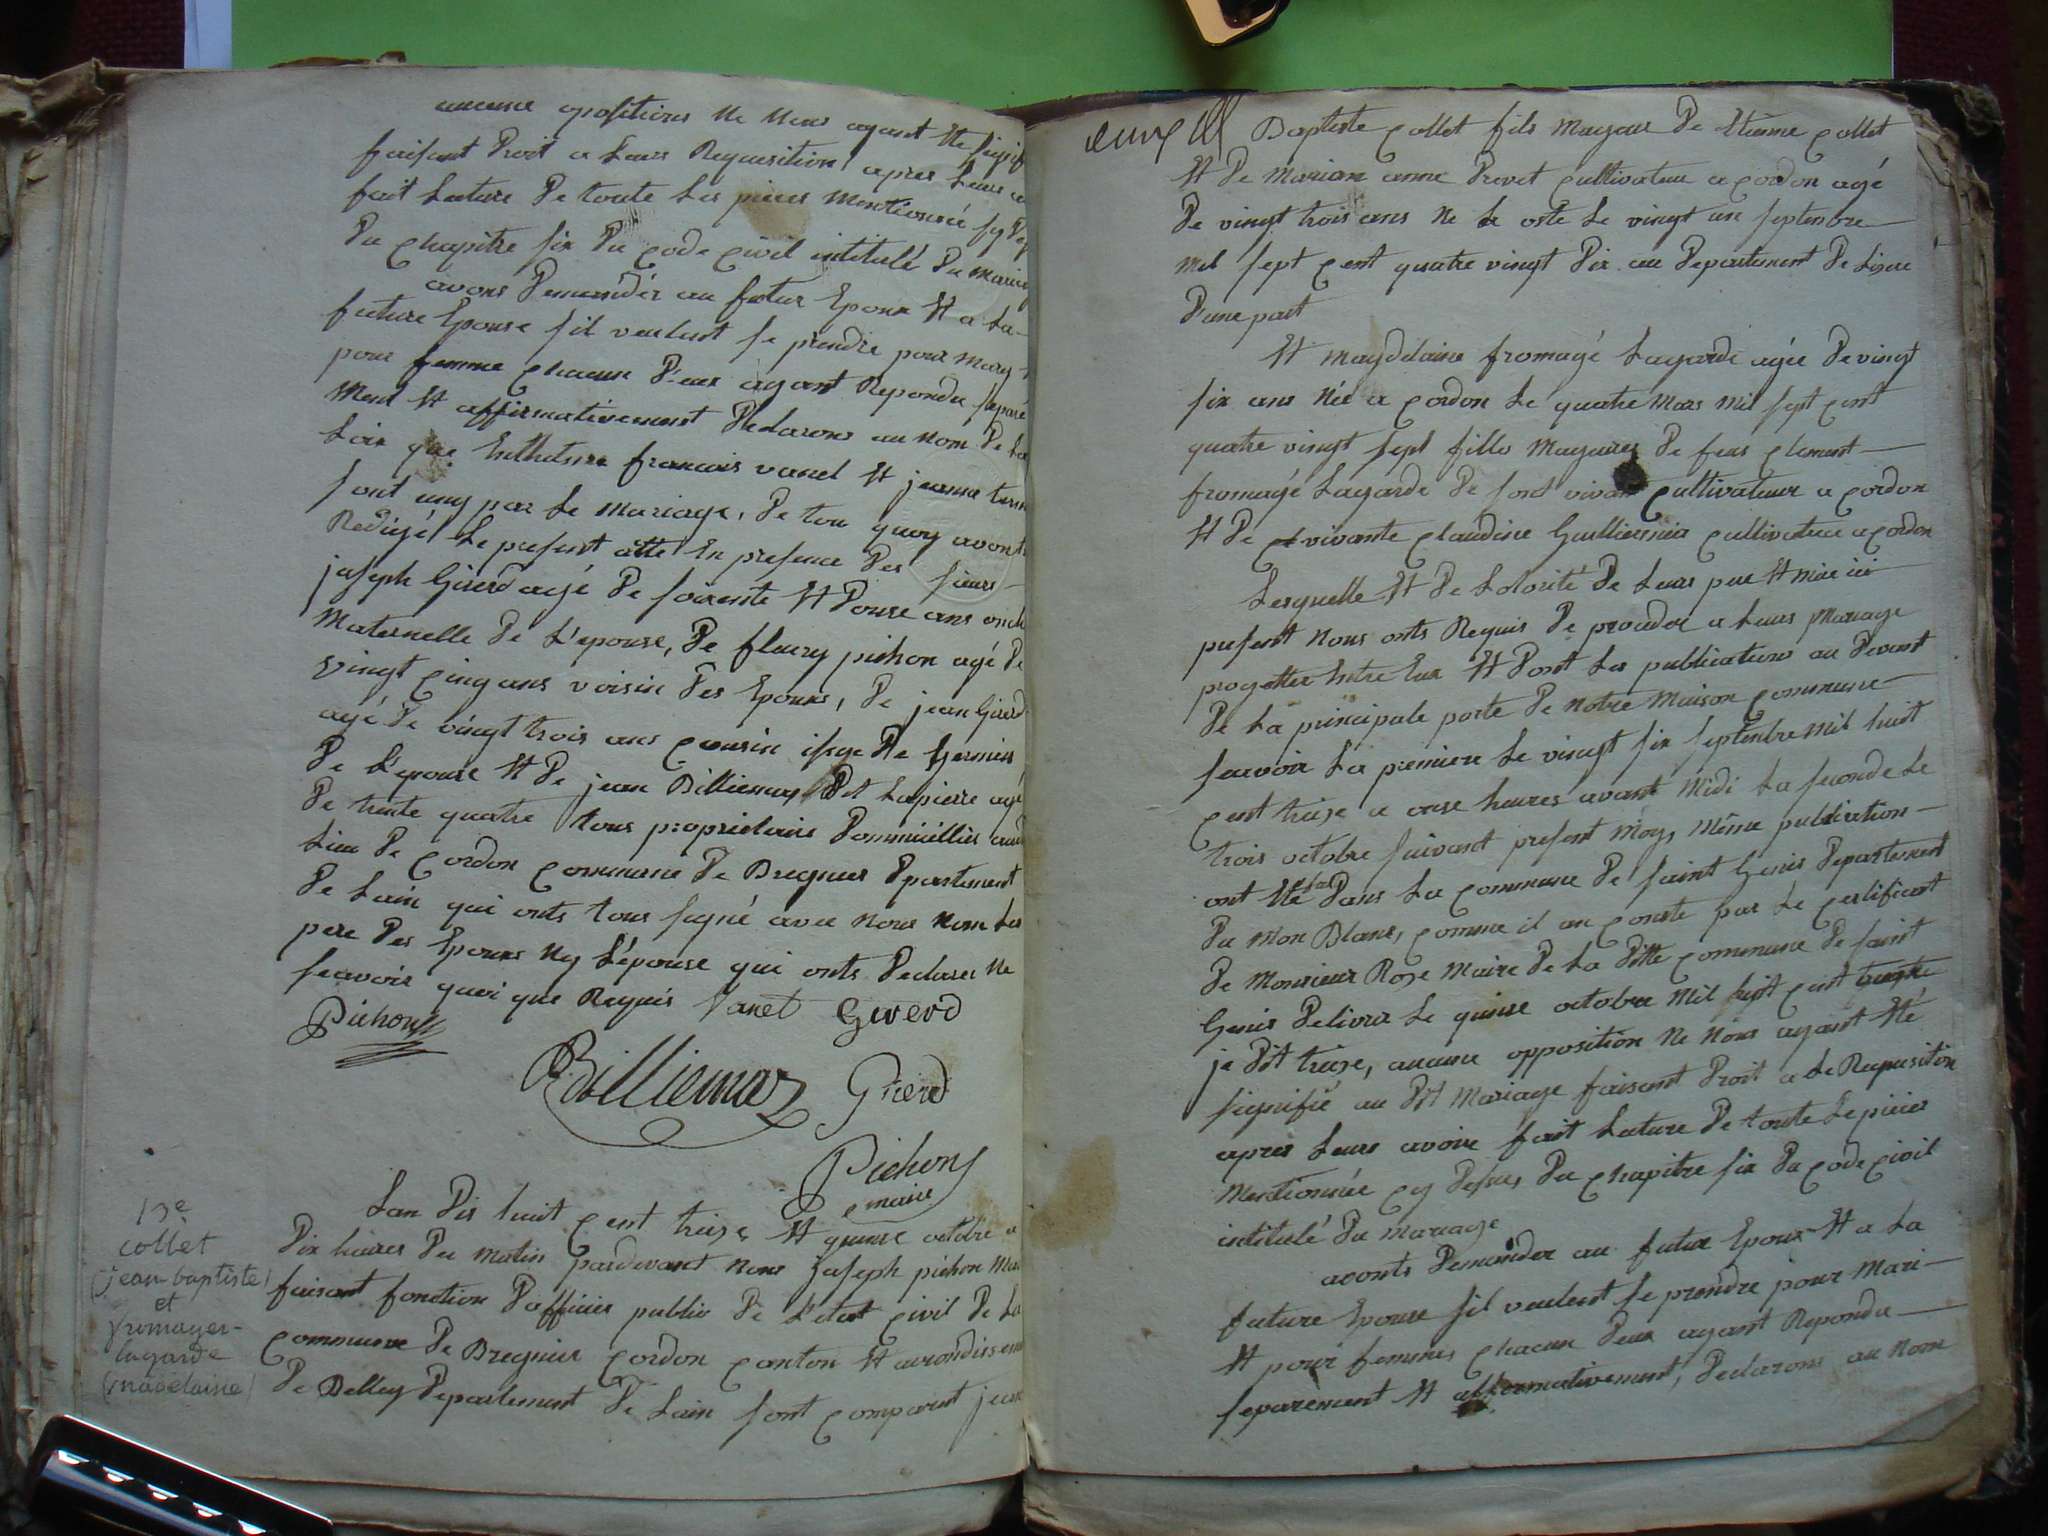 aucune opositions ne nous ayant ete
faisant Droit a Leurs Requisition apres Leurs
fait Lecture De toute Les pieces mentionnée
Du chapitre six Du code civil intitulé Du
avons Demandér au futur Epoux Et a La
future Epouse sil veulent se prendre pour mary
pour femme chacun D'eux ayant Repondu
ment Et affirmativement Declarons au nom De La
Loix que francois vanel Et jeanne
sont uny par Le mariage, De tou quoy avont
Redigé Le present atte En presence Des sieurs
joseph Girerd agé De soixente Et Douse ans
Maternelle De L'epouse, De fleury pichon agé De
vingt cinq ans voisin Des Epoux, De jean Girerd
agé De vingt trois ans cousin De Germain
De L'epouse Et De jean Billiemaz Dit Lapierre agé
De trente quatre tous propriétaire Dommicilliés
Lieu De cordon commune De Bregnier Dpartement
De Lain qui onts tous signé avec nous non Les
pere Des Epoux ny L'épouse qui onts Declarer ne
scavoir quoi que Requis Vanel Girerd
Pichon
Billiemaz Girerd
Pichon
maire
Lan Dix huit cent treize Et quinse octobre a
Dix heures Du matin pardevant nous joseph pichon
faisant fonction D'officier public De L'etat civil De La
commune De Bregnier cordon canton Et
De Belley Departement De Lain sont comparut jean
13e
collet
(jean-baptiste)
et
fromager-
lagarde
(madelaine)
Baptiste collet fils mageur De Etienne collet
Et De marian anne Prevet cultivateur a cordon agé
De vingt trois ans Ne Le vingt un septembre
mil sept cent quatre vingt Dix au Departement De Lisere
D'une part
Et magdelaine fromagé Lagarde agée De vingt
six ans Née a cordon Le quatre mars mil sept cent
quatre vingt sept fille mageures De feux clement
fromagé Lagarde De son vivan cultivateur a cordon
Et De vivante claudine cultivateur a cordon
Lesquelle Et De Lotorité De Leurs pere Et mere ici
present nous onts Requis De proceder a Leurs Mariage
progetter Entre Eux Et Dont Les publications au Devant
De La principale porte De notre maison commune
scavoir La premiere Le vingt six septembre mil huit
cent treize a onse heures avant midi La seconde Le
trois octobre suivant present moy, même publication
ont Eté Dans La commune De saint Genis Departement
Du mon Blanc, comme il an conste par Le certificat
De monsieur Roze maire De La Ditte commune De saint
Genis Delivrer Le quinse octobre mil cent
je Dit treize, aucune opposition ne nous ayant Eté
signifié au Dit mariage faisant Droit a Le Requisition
apres Leurs avoire fait Lecture De toute Le pieces
mentionnée cy Desus, Du chapitre six Du code civil
intitulé Du mariage
avonts Demander au futur Epoux Et a La
future Epouse sil veulent se prendre pour mari
Et pour femme, chacun Deux ayant Repondu
separement Et affirmativement, Declarons au nom